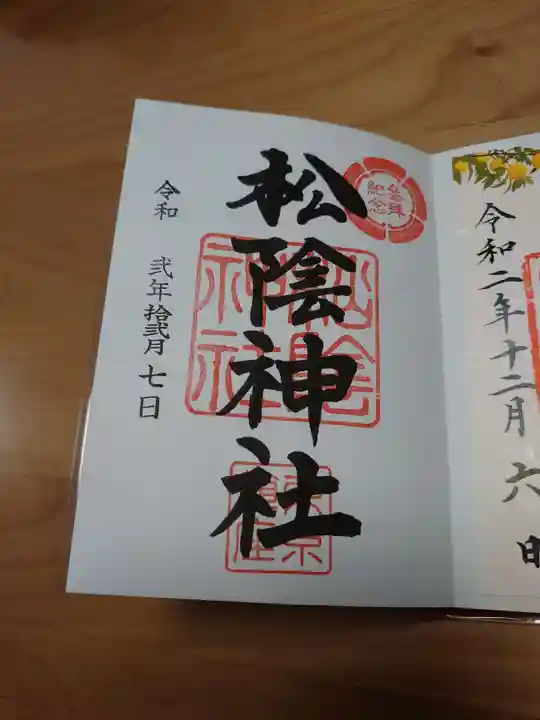 令和二年十二月六日
参拝
紀念
松陰神社
松陰
神社
令和 弐年拾弐月七日